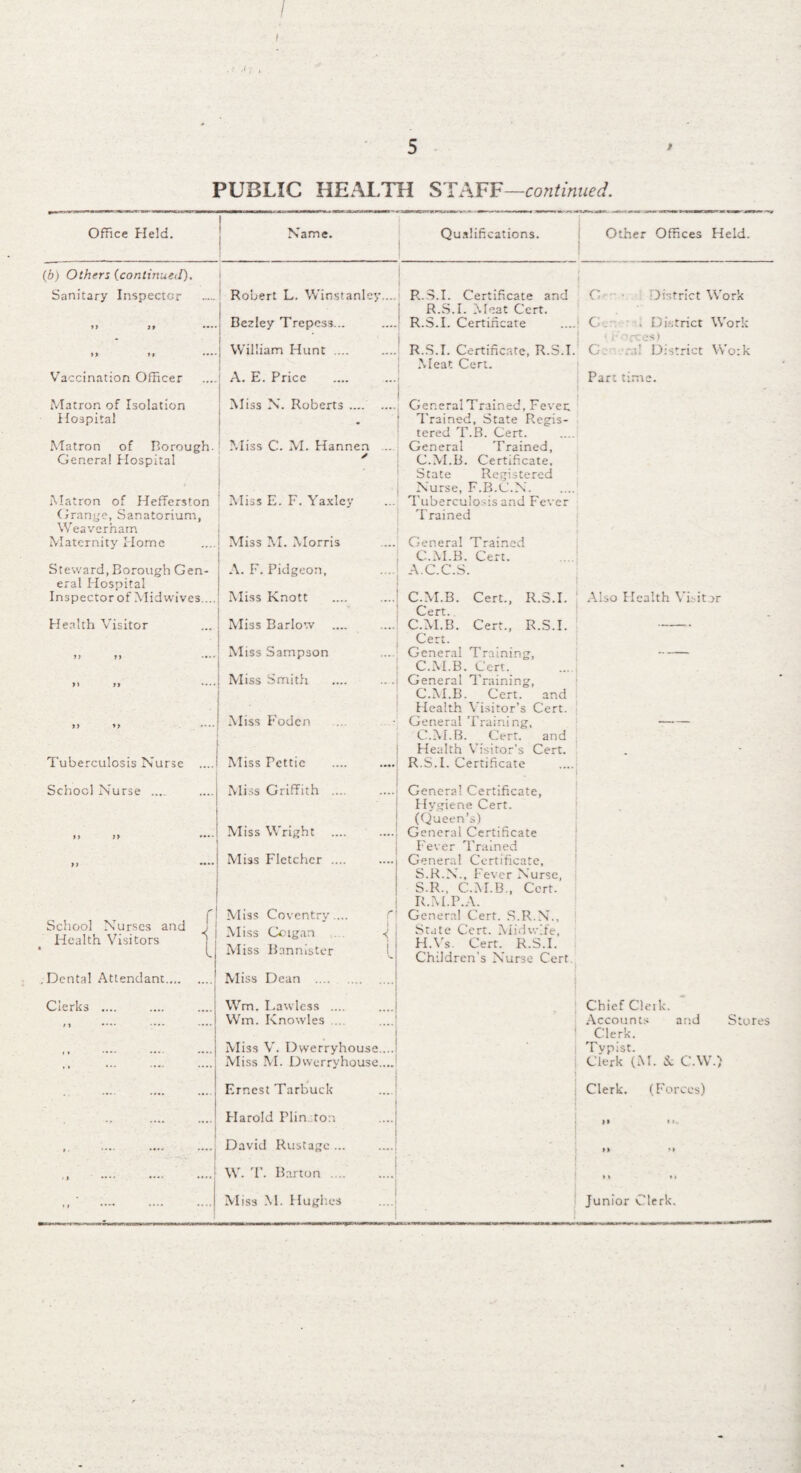 5
PUBLIC HEALTH STAFF—continued.
Office Held. Name. Qualifications. Other Offices Held.
(b) Others (continued).
Sanitary Inspector .... Robert L. Winstanley.... R.S.I. Certificate and R.S.I. Meat Cert. District Work
„ „ .... Bezley Trepess... .... R.S.I. Certificate .... District Work
„ „ .... William Hunt .... .... R.S.I. Certificate, R.S.I. Meat Cert. District Work
Vaccination Officer .... A. E. Price .... .... Part time.
Matron of Isolation Hospital Miss N. Roberts .... .... General Trained, Fever Trained, State Registered T.B. Cert. ....
Matron of Borough General Hospital Miss C. M. Hannen ... General Trained, C.M.B. Certificate, State Registered Nurse, F.B.C.N. ....
Matron of Hefferston Grange, Sanatorium, Weaverham Miss E. F. Yaxley ... Tuberculosis and Fever Trained
Maternity Home .... Miss M. Morris .... General Trained C.M.B. Cert. ....
Steward, Borough General Hospital A. F. Pidgeon, .... A.C.C.S.
Inspector of Midwives.... Miss Knott .... .... C.M.B. Cert., R.S.I. Cert. Also Health Visitor
Health Visitor ... Miss Barlow .... .... C.M.B. Cert., R.S.I. Cert. ——
„ „ .... Miss Sampson .... General Training, C.M.B. Cert. .... ——
„ „ .... Miss Smith .... .... General Training, C.M.B. Cert. and Health Visitor's Cert.
„ „ .... Miss Foden .... General Training, C.M.B. Cert. and Health Visitor's Cert. ——
Tuberculosis Nurse .... Miss Pettie .... .... R.S.I. Certificate ....
School Nurse .... .... Miss Griffith .... .... General Certificate, Hygiene Cert. (Queen's)
„ „ .... Miss Wright .... .... General Certificate Fever Trained
„ .... Miss Fletcher .... .... General Certificate, S.R.N., Fever Nurse, S.R., C.M.B., Cert. R.M.P.A.
School Nurses and Health Visitors { Miss Coventry.... Miss Coigan .... Miss Bannister { General Cert. S.R.N., State Cert. Midwife, H.Vs. Cert. R.S.I. Children's Nurse Cert.
Dental Attendant.... .... Miss Dean .... .... ....
Clerks .... .... .... Wm. Lawless .... .... Chief Clerk.
„ .... .... .... Wm. Knowles .... .... Accounts and Stores Clerk.
„ .... .... .... Miss V. Dwerryhouse.... Typist.
„ .... .... .... Miss M. Dwerryhouse.... Clerk (M. & C.W.)
.... .... .... Ernest Tarbuck .... Clerk. (Forces)
.... .... Harold Plimston .... „ „
„ .... .... .... David Rustage ... .... „ „
„ .... .... .... W. T. Barton .... .... „ „
„ .... .... .... Miss M. Hughes .... Junior Clerk.